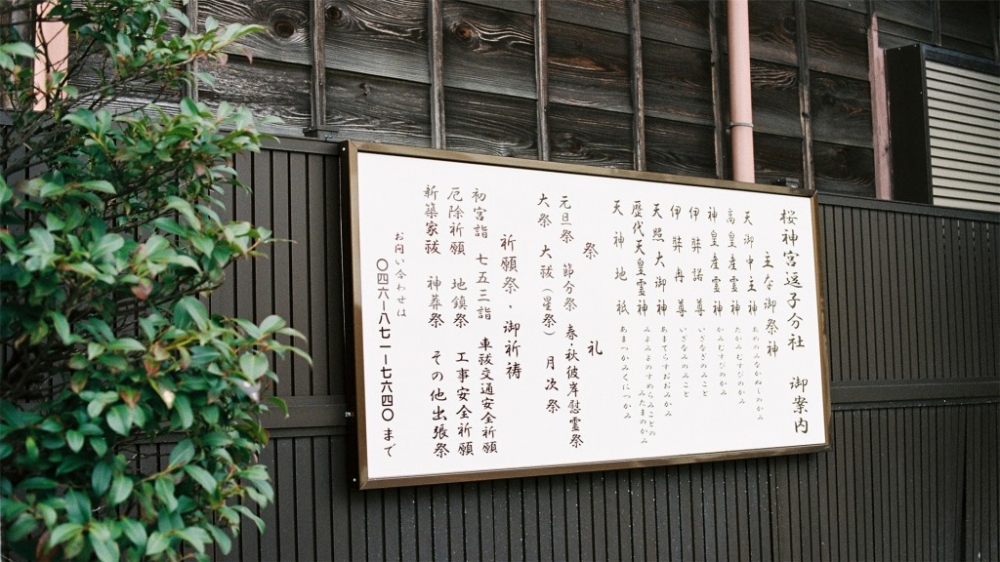 桜神宮逗子分社 御案内
主な御祭神
天御中主神 あめのみなかぬしのかみ
高皇産霊神 たかみむすびのかみ
神皇産霊神 かみむすびのかみ
伊弉諾尊 いざなぎのみこと
伊弉冉尊 いざなみのみこと
天照大御神 あまてらすおおみかみ
歴代天皇霊神 みよみよのすめらみことのみたまのかみ
天神地祇 あまつかみくにつかみ
祭礼
元旦祭 節分祭 春・秋彼岸慰霊祭
大祭 大祓(星祭) 月次祭
祈願祭・御祈祷
初宮詣 七五三詣 車祓交通安全祈願
厄除祈願 地鎮祭 工事安全祈願
新築家祓 神葬祭 その他出張祭
お問い合わせは
〇四六ー八七一ー七六四〇まで